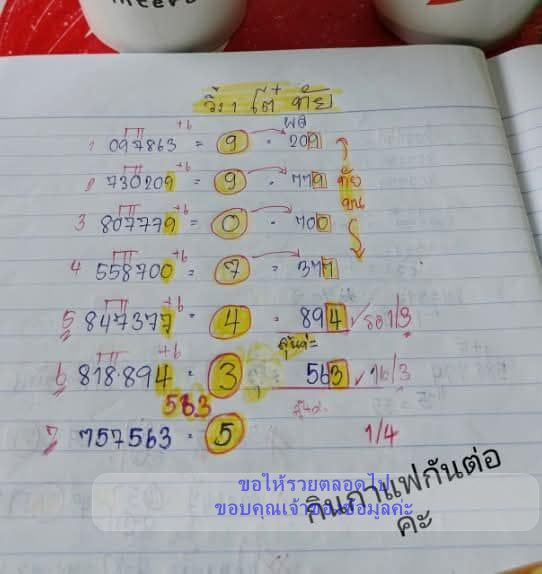 วิ่ง 1 โต๊ + ท้าย
ผล
1 097863 +6 = 9 · 209
2 730209 +6 = 9 · 779
3 807779 +6 = 0 · 700
4 558700 +6 = 7 · 377
5 847377 +6 = 4 · 894 ✓ รอ1/3
6 818·894 +6 = 3 563 ✓ 16/3
563
7 757563 = 5 1/4
ขอให้รวยตลอดไป
ขอบคุณเจ้าของข้อมูลค่ะ
กินกาแฟกันต่อ
ค่ะ